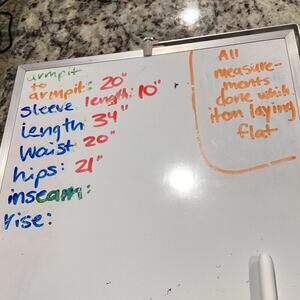 armpit
to
armpit: 20"
sleeve length: 10"
length: 34"
waist 20"
hips: 21"
inseam:
rise:
All
measure-
ments
done with
item laying
flat